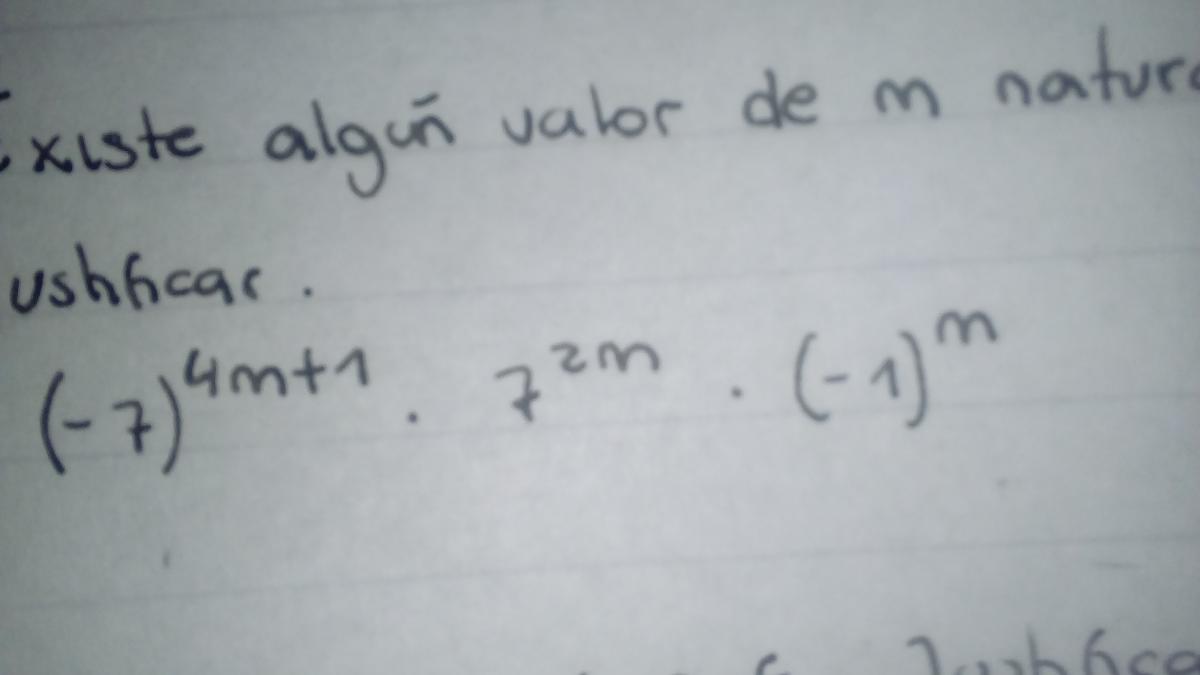 Existe algún valor de m natura
ustificar.
(-7)^{4m+1} . 7^{2m} . (-1)^m
Justifica